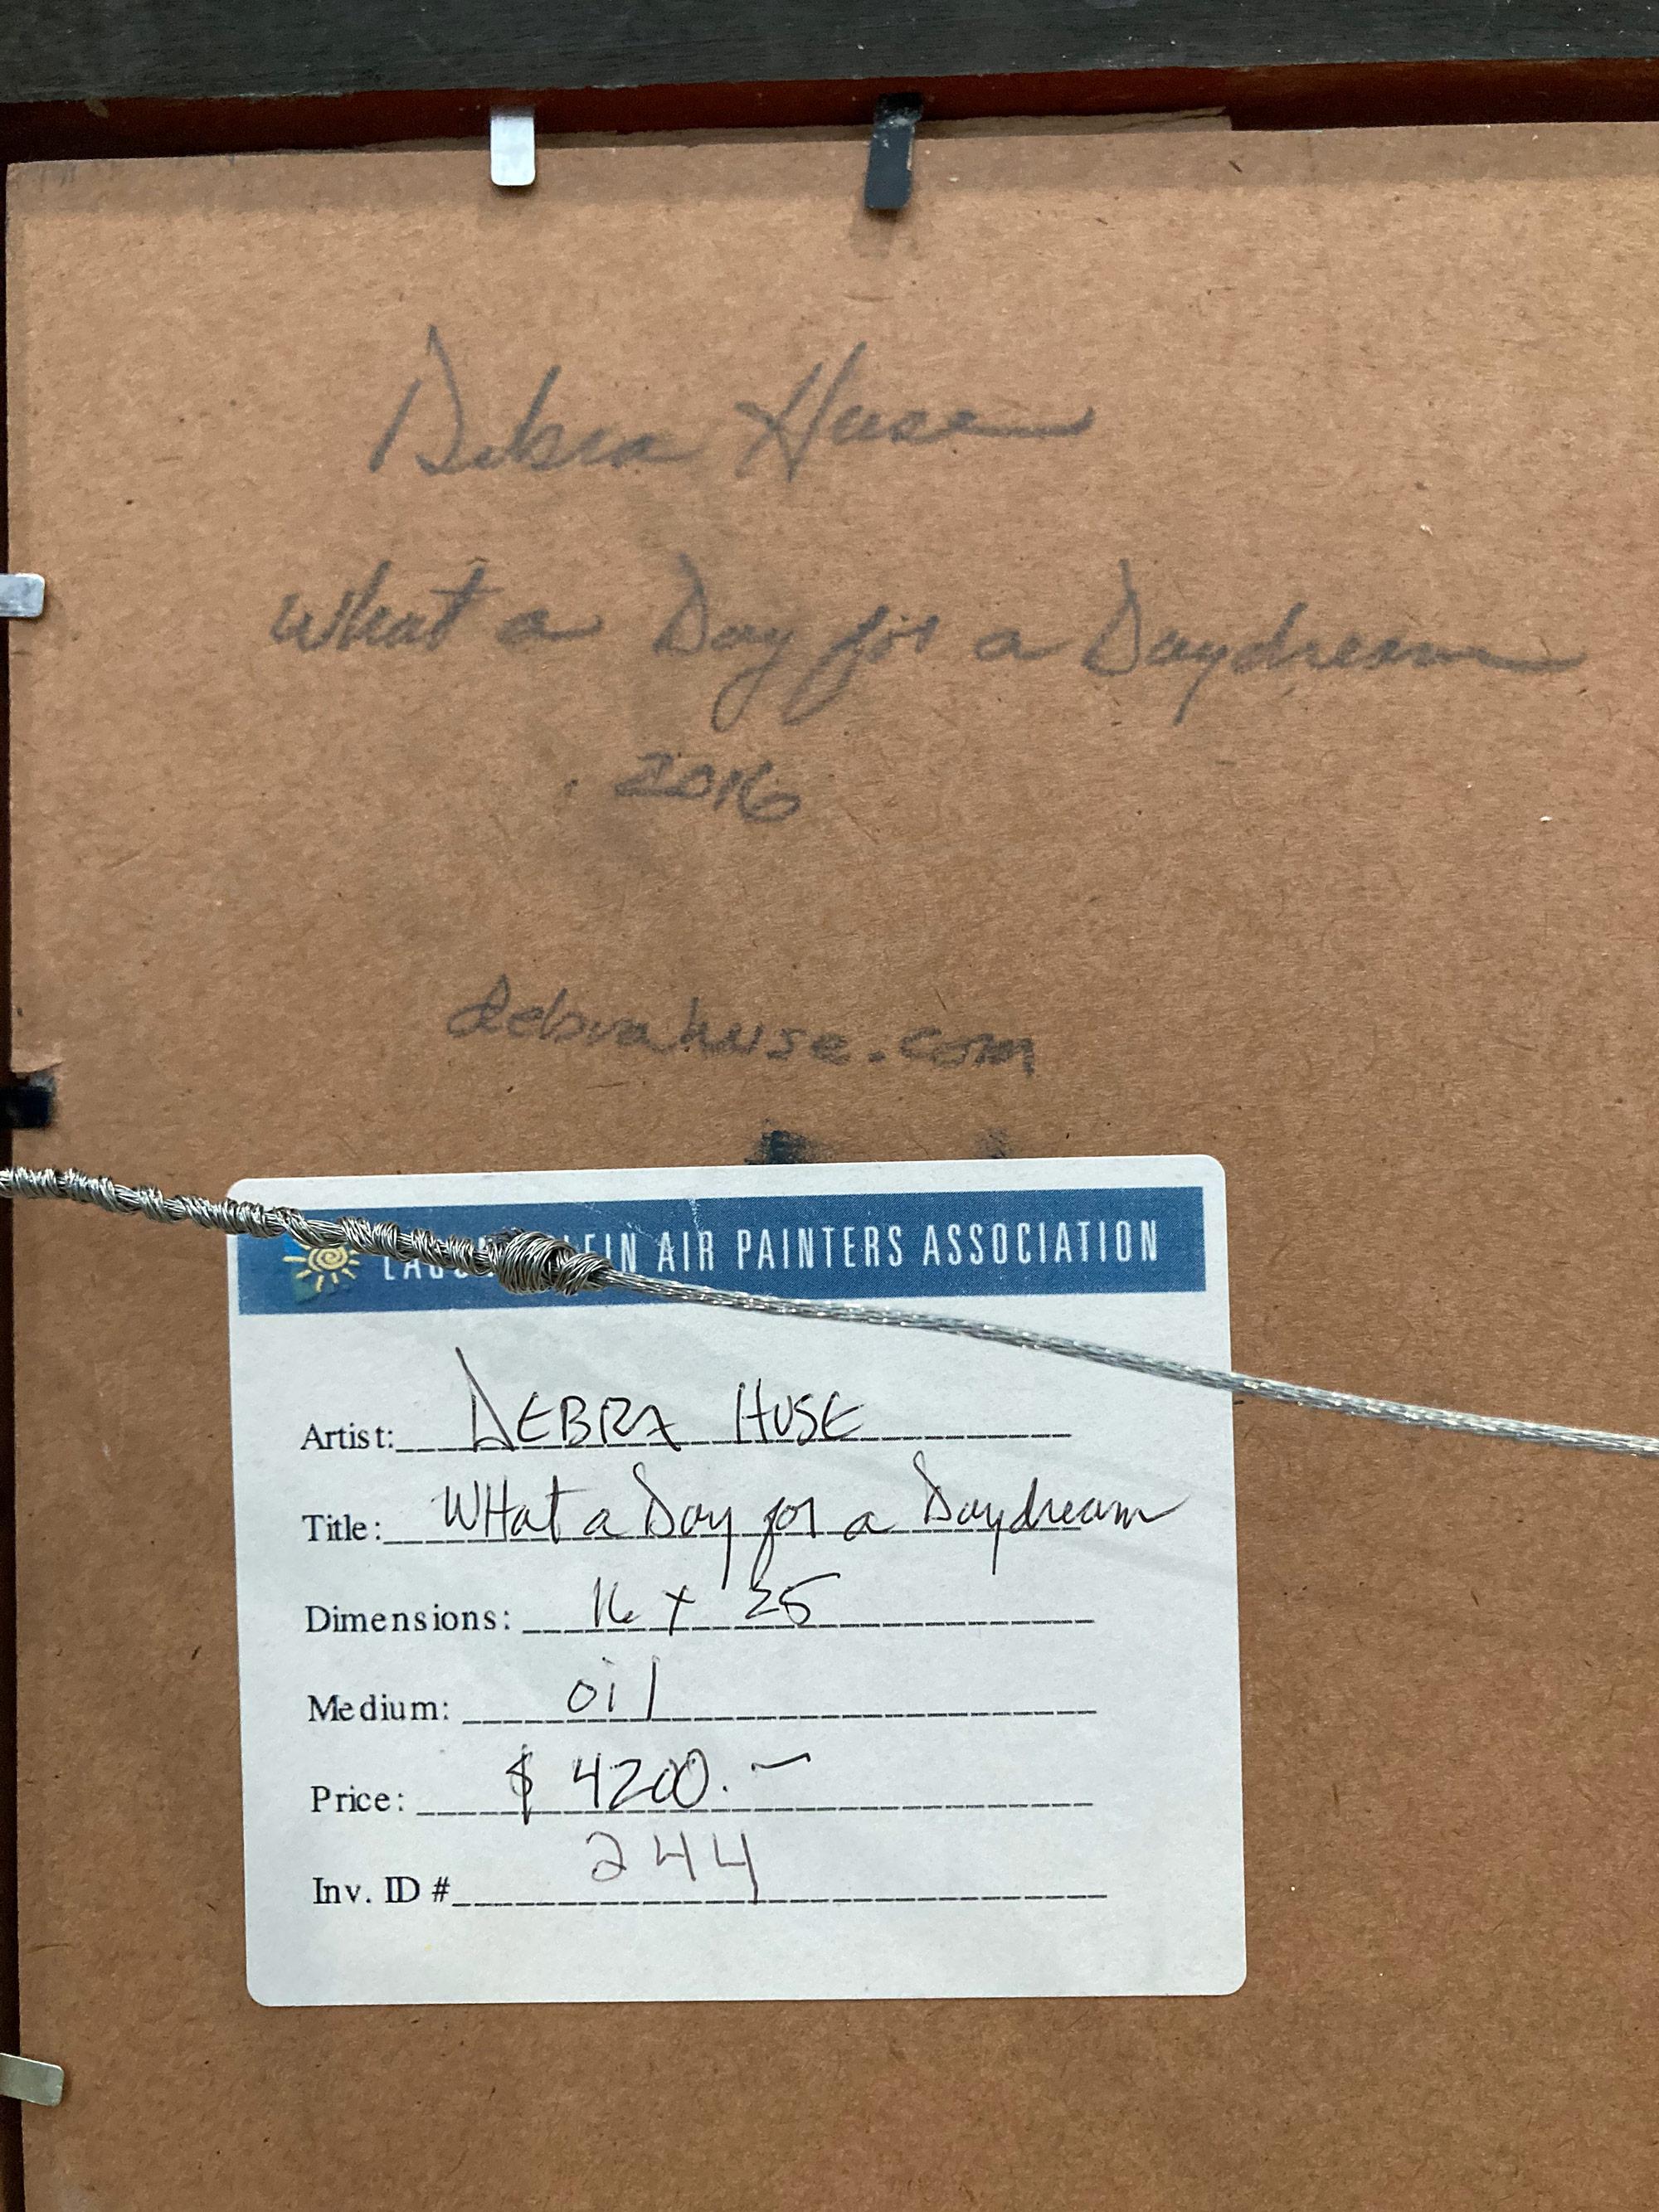 Debra Huse
What a Day for a Daydream
2016
debrahuse.com
AIR PAINTERS ASSOCIATION
Artist: DEBRA HUSE
Title: WHat a Day for a Daydream
Dimensions: 16 x 25
Medium: oil
Price: $ 4200.–
Inv. ID # 244